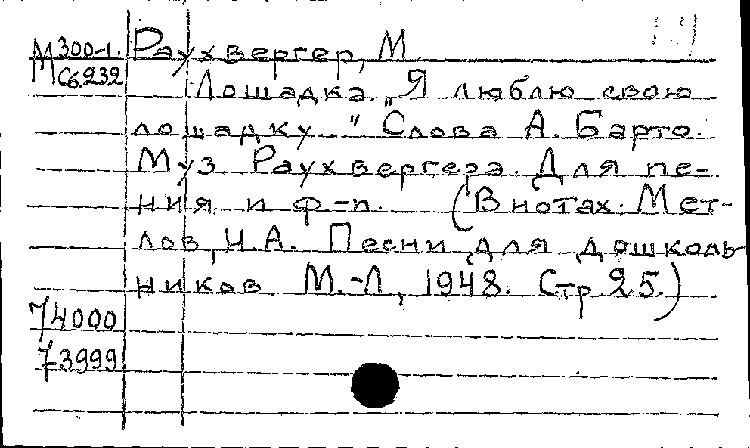 М 300-1. Раухвергер, М
Сб.232 Лошадка. „Я люблю свою
лошадку..." Слова А. Барто.
Муз Раухвергера. Для пе-
ния и ф-п. (В нотах: Мет-
лов, Н.А. Песни для дошколь-
ников М.-Л, 1948. Стр 25.)
74000
73999